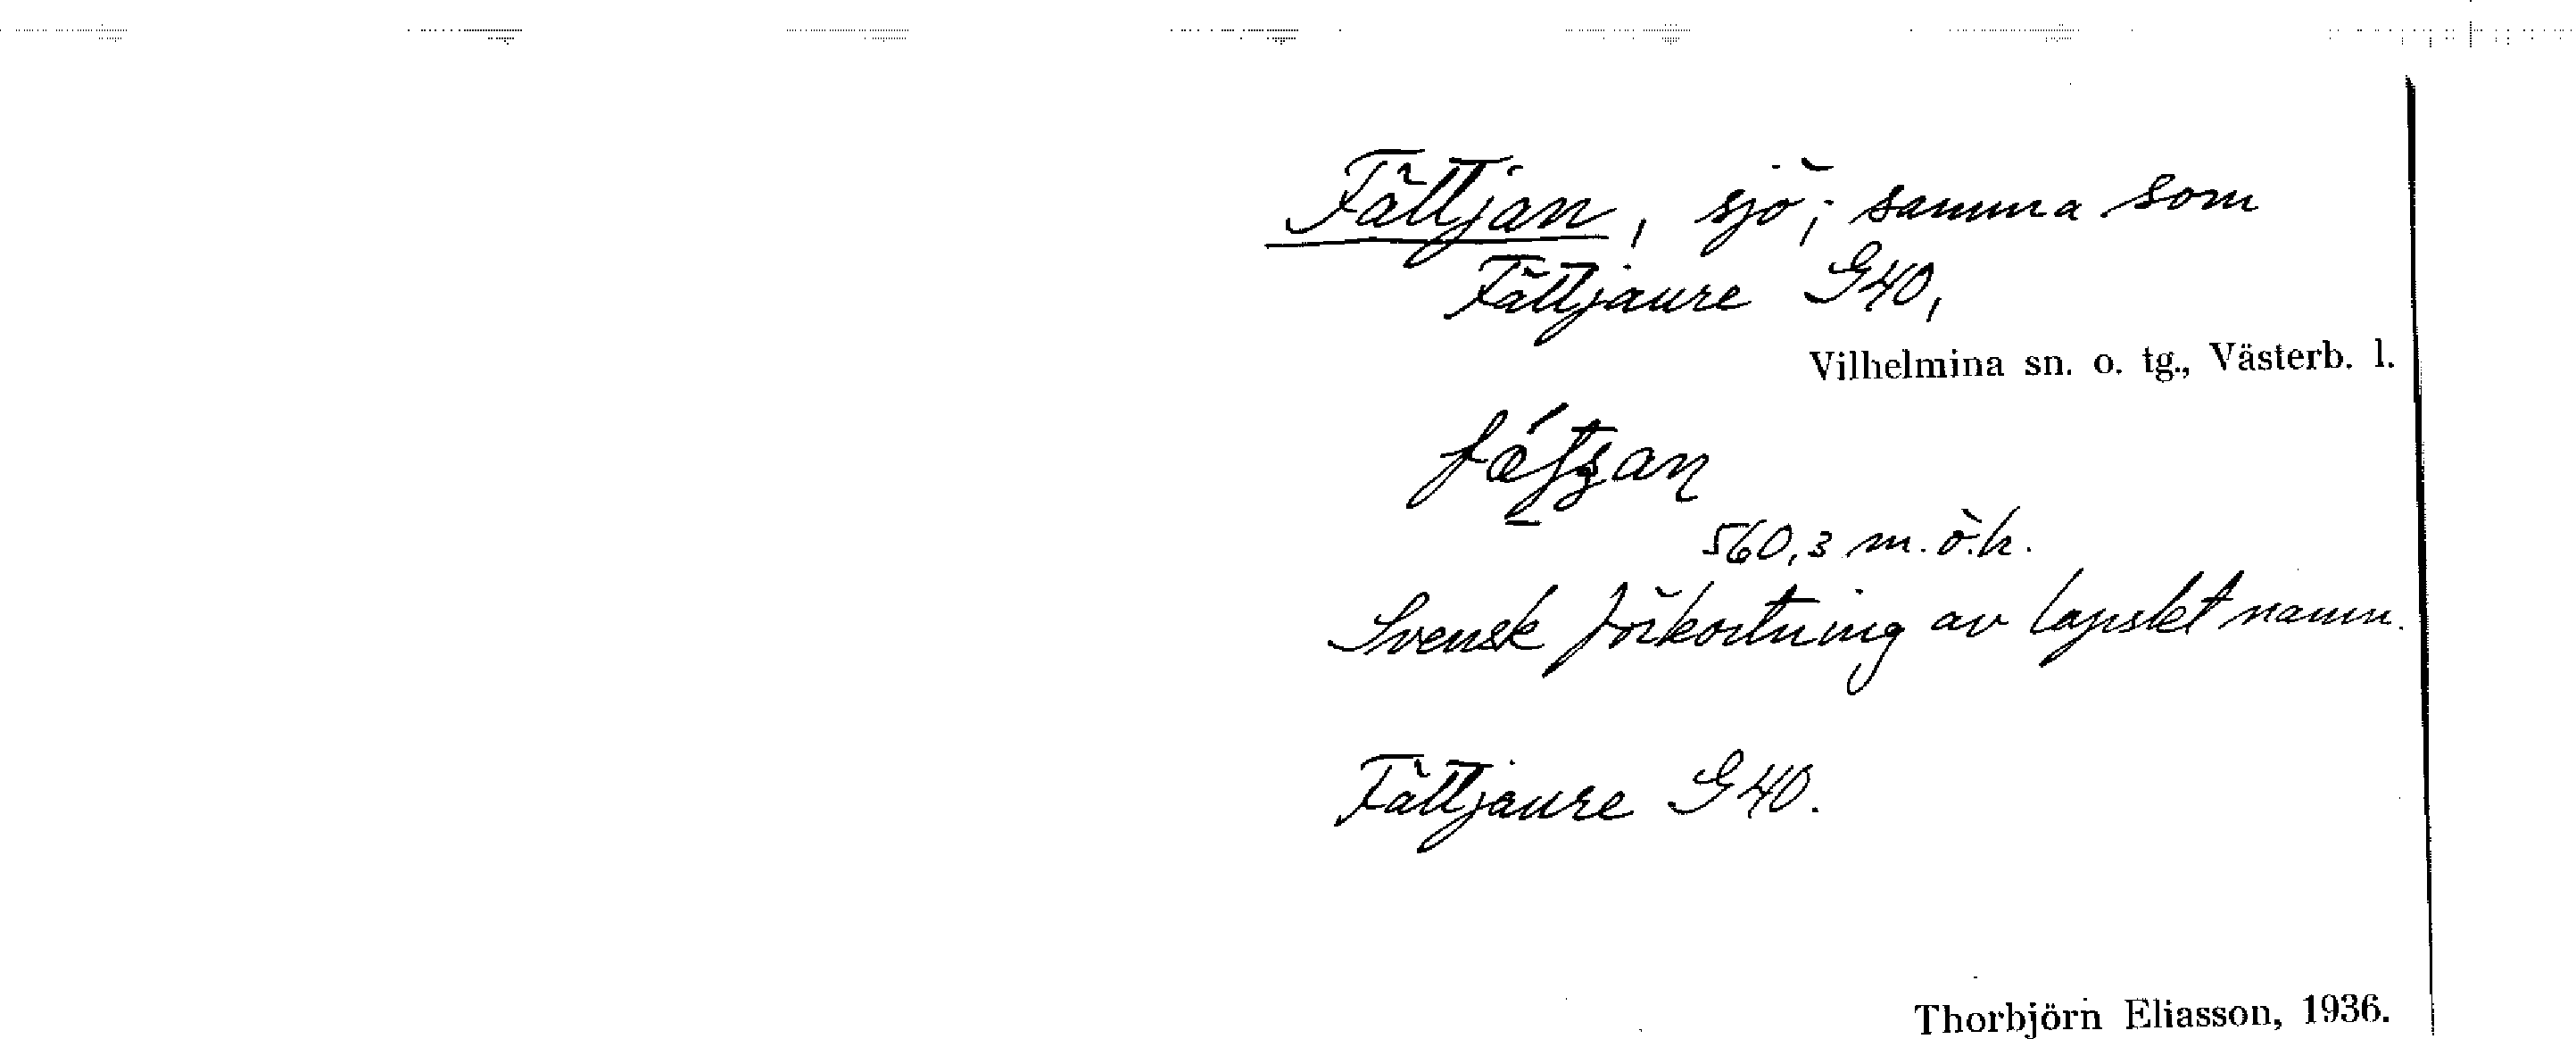 Fättjan, sjö; samma som
Fättjaure G40,
Vilhelmina sn. o. tg., Västerb. l.
560,3 m.ö.h.
Svensk förkortning av lapskt namn.
Fättjaure G40.
Thorbjörn Eliasson, 1936.